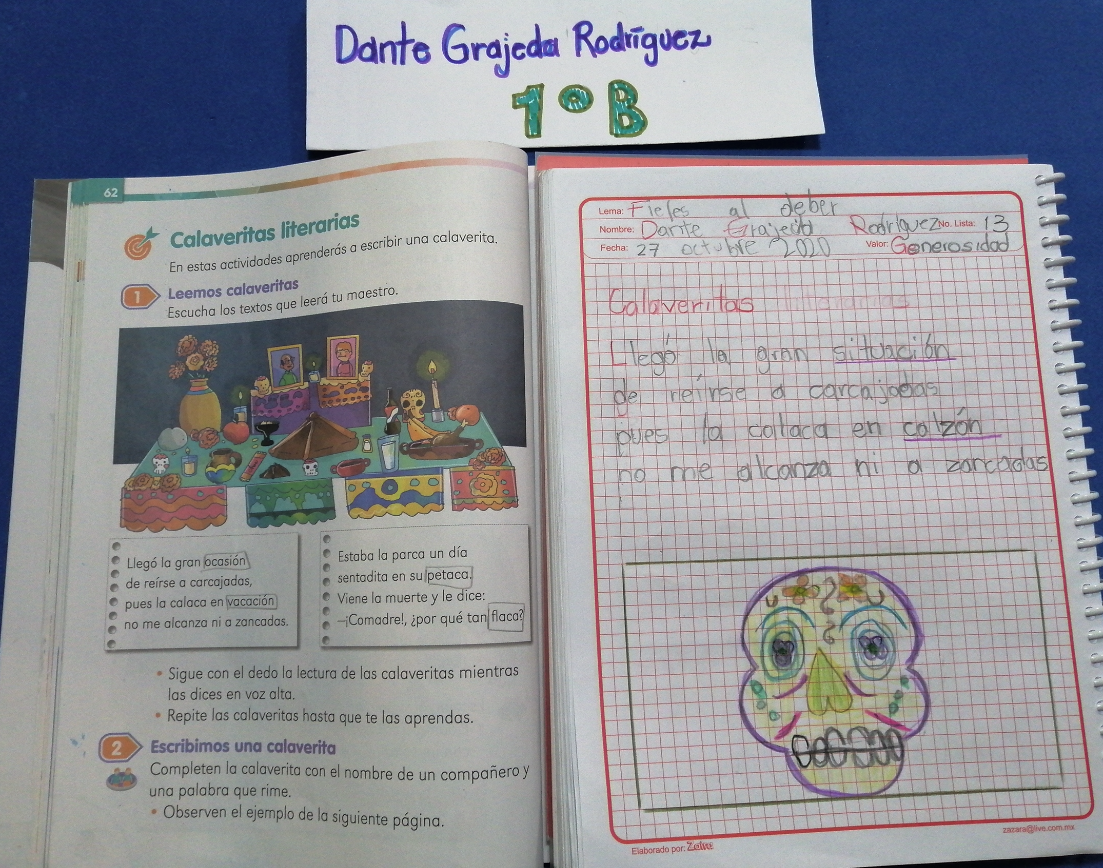 Dante Grajeda Rodríguez
1º B
62
Calaveritas literarias
En estas actividades aprenderás a escribir una calaverita.
1 Leemos calaveritas
Escucha los textos que leerá tu maestro.
Llegó la gran ocasión
de reírse a carcajadas,
pues la calaca en vacación
no me alcanza ni a zancadas.
Estaba la parca un día
sentadita en su petaca.
Viene la muerte y le dice:
—¡Comadre!, ¿por qué tan flaca?
• Sigue con el dedo la lectura de las calaveritas mientras
las dices en voz alta.
• Repite las calaveritas hasta que te las aprendas.
2 Escribimos una calaverita
Completen la calaverita con el nombre de un compañero y
una palabra que rime.
• Observen el ejemplo de la siguiente página.
Lema: Fieles al deber
Nombre: Dante Grajeda Rodríguez No. Lista: 13
Fecha: 27 octubre 2020 Valor: Generosidad
Calaveritas literarias
Llegó la gran situación
de reírse a carcajadas
pues la callaca en calzón
no me alcanza ni a zancadas
Elaborado por: Zelus
zazara@live.com.mx